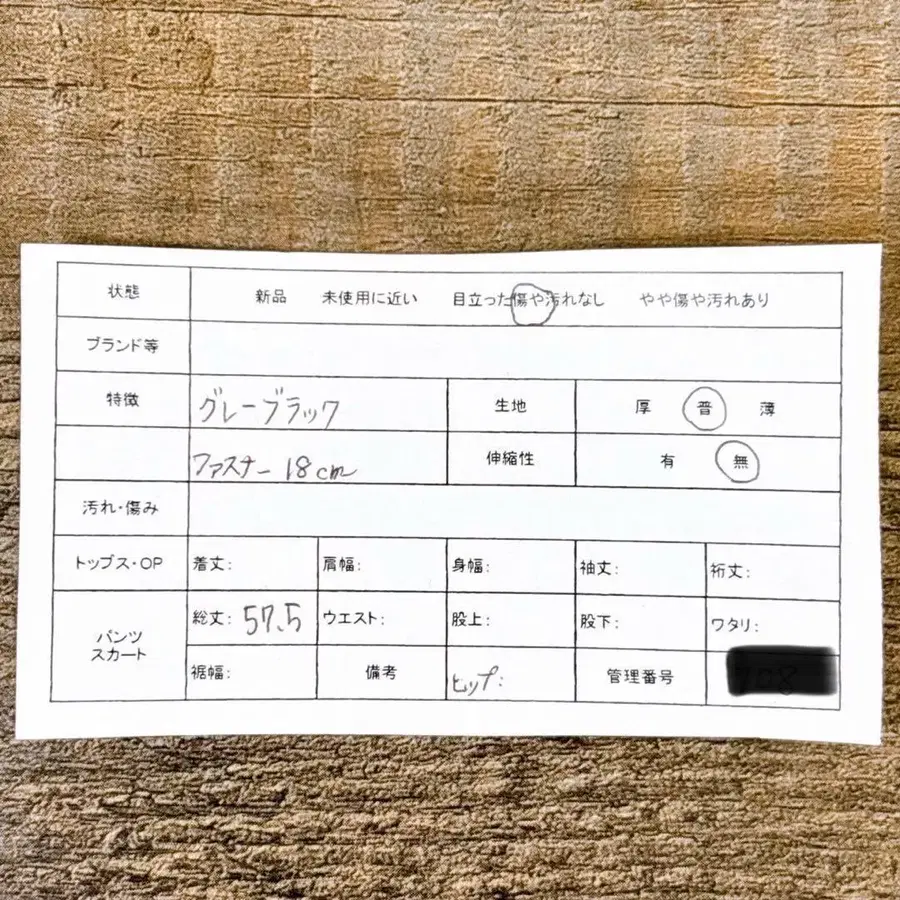 状態 新品 未使用に近い 目立った傷や汚れなし やや傷や汚れあり
ブランド等
特徴 グレーブラック 生地 厚 普 薄
ファスナー 18cm 伸縮性 有 無
汚れ・傷み
トップス・OP 着丈: 肩幅: 身幅: 袖丈: 裄丈:
パンツ
スカート
総丈: 57.5 ウエスト: 股上: 股下: ワタリ:
裾幅: 備考 ヒップ: 管理番号